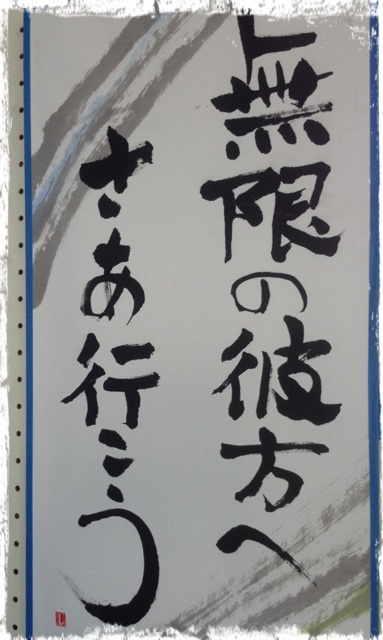 無限の彼方へ
さあ行こう